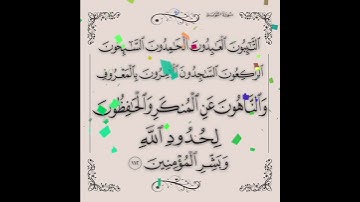 سورة التوبة
التَّٰٓئِبُونَ الْعَٰبِدُونَ الْحَٰمِدُونَ السَّٰٓئِحُونَ
الرَّٰكِعُونَ السَّٰجِدُونَ الْءَامِرُونَ بِالْمَعْرُوفِ
وَالنَّاهُونَ عَنِ الْمُنكَرِ وَالْحَٰفِظُونَ
لِحُدُودِ اللَّهِ
وَبَشِّرِ الْمُؤْمِنِينَ ١١٢